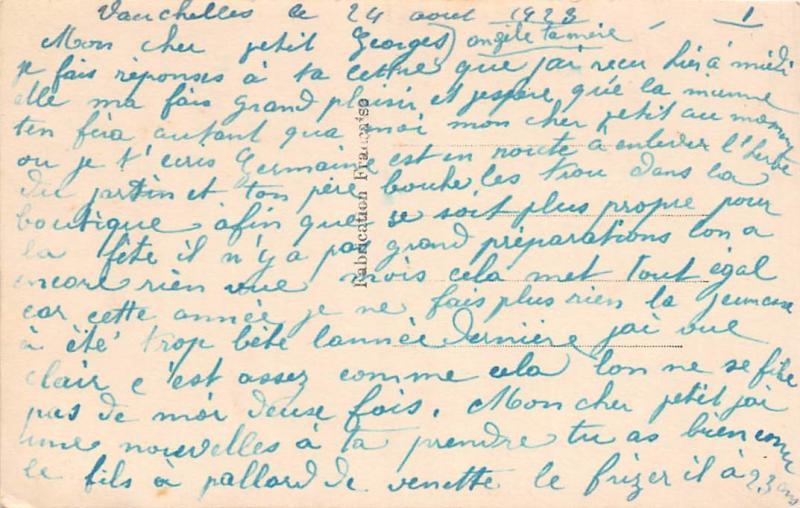 Vauchelles le 24 aout 1923 1
Mon cher petit Georges angèle ta mère
je fais réponses à ta lettre que jai recu hier à midi
elle ma fais grand plaisir et jespère que la mienne
ten fera autant qua moi mon cher petit au moment
ou je t'ecris Germaine est en route à enlever l'herbe
du jardin et ton père bouche les trou dans la
boutique afin que se soit plus propre pour
la fête il n'y a pas grand préparations lon a
encore rien vue mois cela met tout égal
car cette année je ne fais plus rien la jeunesse
à été trop bête lannée dernière jai vue
clair c'est assez comme cela lon ne se fiche
pas de moi deuse fois. Mon cher petit jai
une nouvelles à ta prendre tu as bien connu
le fils à pallard de venette le frizer il à 23 ans
Fabrication Française